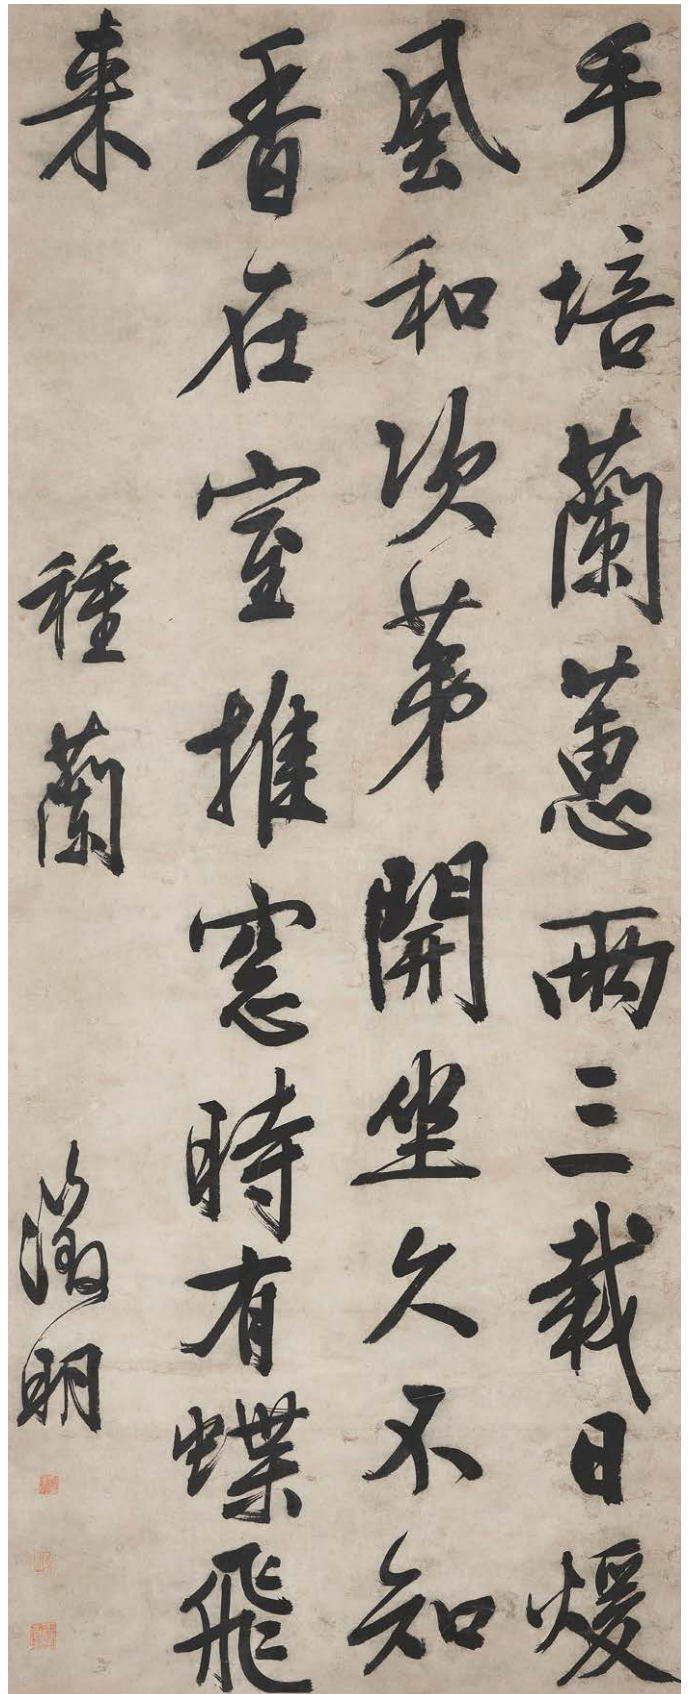 手培蘭蕙兩三載日煖
風和次苐開坐久不知
香在室推窓時有蝶飛
来
種蘭
徵明